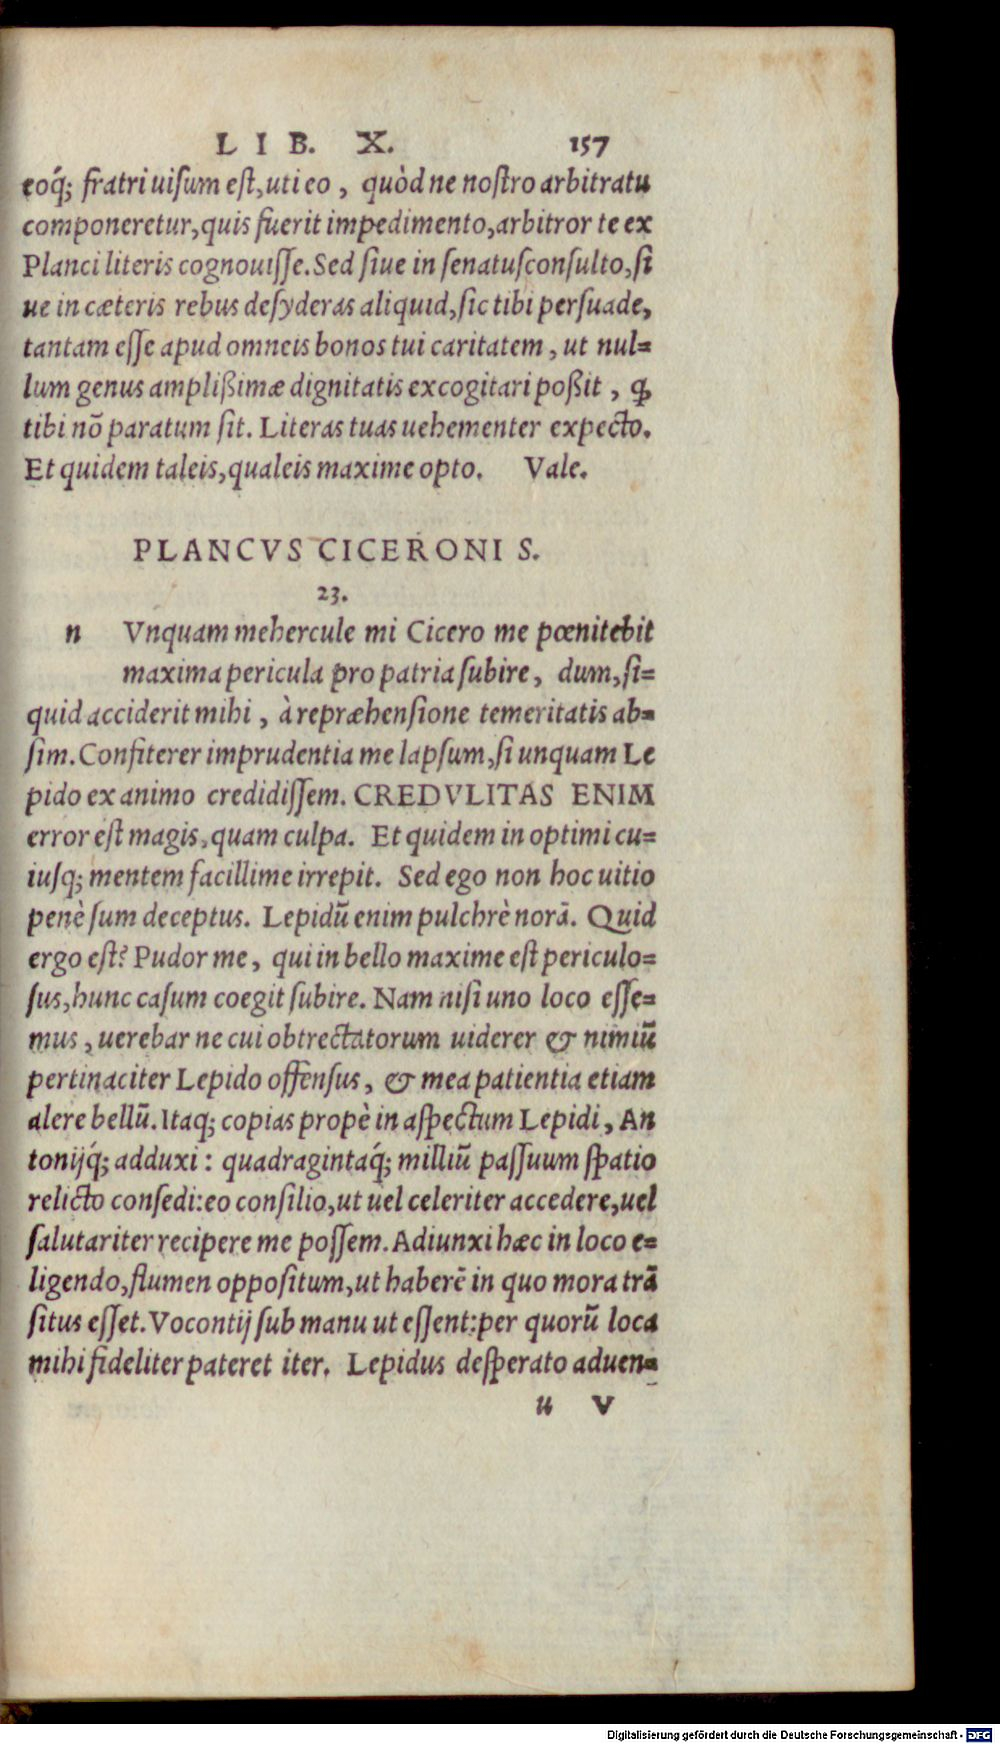 LIB. X. 157
eoq́; fratri uisum est, uti eo, quòd ne nostro arbitratu
componeretur, quis fuerit impedimento, arbitror te ex
Planci literis cognouisse. Sed siue in senatusconsulto, si
ue in cæteris rebus desyderas aliquid, sic tibi persuade,
tantam esse apud omneis bonos tui caritatem, ut nul=
lum genus amplißimæ dignitatis excogitari poßit, ꝙ
tibi nō paratum sit. Literas tuas uehementer expecto.
Et quidem taleis, qualeis maxime opto. Vale.
PLANCVS CICERONI S.
23.
n Vnquam mehercule mi Cicero me pœnitebit
maxima pericula pro patria subire, dum, si=
quid acciderit mihi, à repræhensione temeritatis ab=
sim. Confiterer imprudentia me lapsum, si unquam Le
pido ex animo credidissem. CREDVLITAS ENIM
error est magis, quam culpa. Et quidem in optimi cu=
iusq; mentem facillime irrepit. Sed ego non hoc uitio
penè sum deceptus. Lepidū enim pulchrè norā. Quid
ergo est? Pudor me, qui in bello maxime est periculo=
sus, hunc casum coegit subire. Nam nisi uno loco esse=
mus, uerebar ne cui obtrectatorum uiderer & nimiū
pertinaciter Lepido offensus, & mea patientia etiam
alere bellū. Itaq; copias propè in aspectum Lepidi, An
tonijq́; adduxi: quadragintaq́; milliū passuum spatio
relicto consedi: eo consilio, ut uel celeriter accedere, uel
salutariter recipere me possem. Adiunxi hæc in loco e=
ligendo, flumen oppositum, ut haberē in quo mora trā
situs esset. Vocontij sub manu ut essent: per quorū loca
mihi fideliter pateret iter. Lepidus desperato aduen=
u V
Digitalisierung gefördert durch die Deutsche Forschungsgemeinschaft - DFG